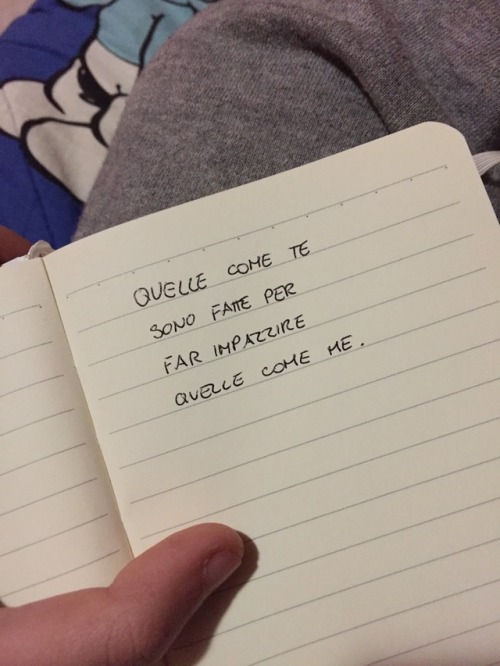 QUELLE COME TE
SONO FATTE PER
FAR IMPAZZIRE
QUELLE COME ME.